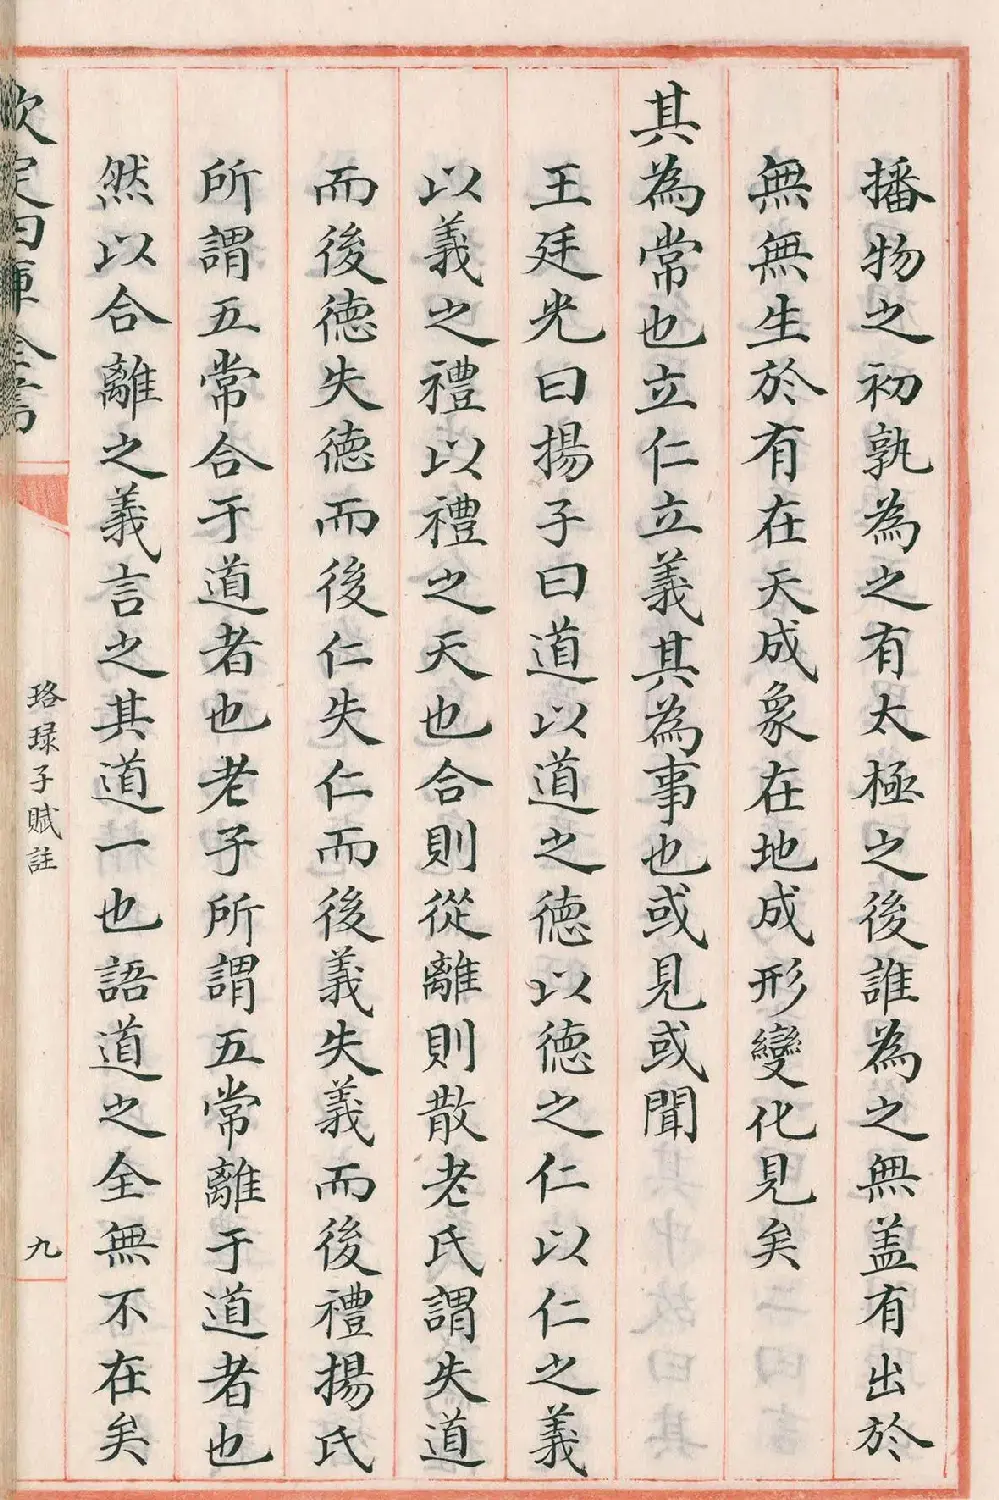 播物之初孰為之有太極之後誰為之無盖有出於
無無生於有在天成象在地成形變化見矣
其為常也立仁立義其為事也或見或聞
王廷光曰揚子曰道以道之德以德之仁以仁之義
以義之禮以禮之天也合則從離則散老氏謂失道
而後德失德而後仁失仁而後義失義而後禮揚氏
所謂五常合于道者也老子所謂五常離于道者也
然以合離之義言之其道一也語道之全無不在矣
欽定四庫全書
珞琭子賦註
九